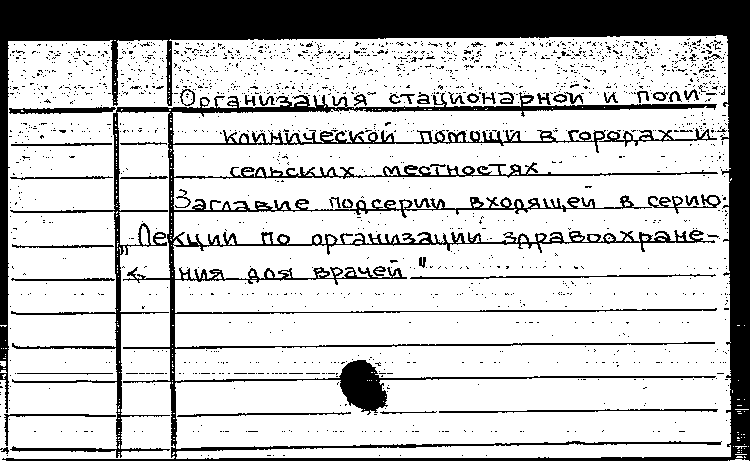 Организация стационарной и поли-
клинической помощи в городах и
сельских местностях.
Заглавие подсерии, входящей в серию:
„Лекции по организации здравоохране-
ния для врачей"